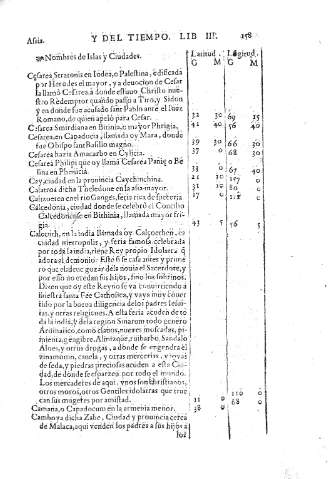 Asia. Y DEL TIEMPO. LIB III. 158
Nombres de Islas y Ciudades. Latitud. Lõgitud.
G M G M
Cesarea Stratonis en Iudea, o Palestina, edificada
por Herodes el mayor, y a deuocion de Cesar
la llamò Cesarea à donde estuuo Christo nuestro
Redemptor quando passò a Tiro, y Sidon
y en donde fue acusado sant Pablo ante el Iuez
Romano, de quien apelò para Cesar. 32 30 69 15
Cesarea Smirdiana en Bitinia, o mayor Phrigia, 41 40 56 40
Cesarea, en Capadocia, llamada oy Mara, donde
fue Obispo sant Basilio magno. 39 30 66 30
Cesarea haria Amacarbo en Cylicia. 37 0 68 30
Cesarea Philipi que oy llamã Cesarea Panis o Be
sina en Phenicia. 33 0 67 40
Cey, ciudad en la prouincia Caychinchina. 21 10
Calcedonia, ciudad donde se celebrò el Concilio
Calcedonense en Bithinia, llamada mayor frigia. 43 5 56 5
Calecuth, en la india llamada oy Calçocherẽ, es
ciudad metropolis, y feria famosa celebrada
por toda la india, tiene Rey propio Idolatra q̃
adora el demonio. Este si se casa antes y primero
que el dente gozar dela nouia el Sacerdote, y
por esso no eredan sus hijos, sino los sobrinos.
Dizen que oy este Reyno se va conuirtiendo à
nuestra santa Fee Catholica, y va muy concertido
por la buena diligencia delos padres Iesuitas,
y otras religiones. A esta feria acuden de toda
la india, y dela region Sinarum todo genero
Aromatico, como clauos, nuezes moscadas, pimienta,
gengibre, Almizque, ruibarbo, Sandalo
Aloes, y otras drogas, a donde se engendra el
cinamomo, canela, y otras mercerias, y joyas
de seda, y piedras preciosas acuden a esta Ciudad,
de donde se esparzen por todo el mundo.
Los mercaderes de aqui, unos son christianos,
otros moros, otros Gentiles idolatras que truecan
sus mugeres por amistad. 11 0 110 0
Camana, o Capadocum en la armenia menor. 38 0 68 0
Camboya dicha Zabe, Ciudad y prouincia cerca
de Malaca, aqui venden los padres a sus hijos a
los